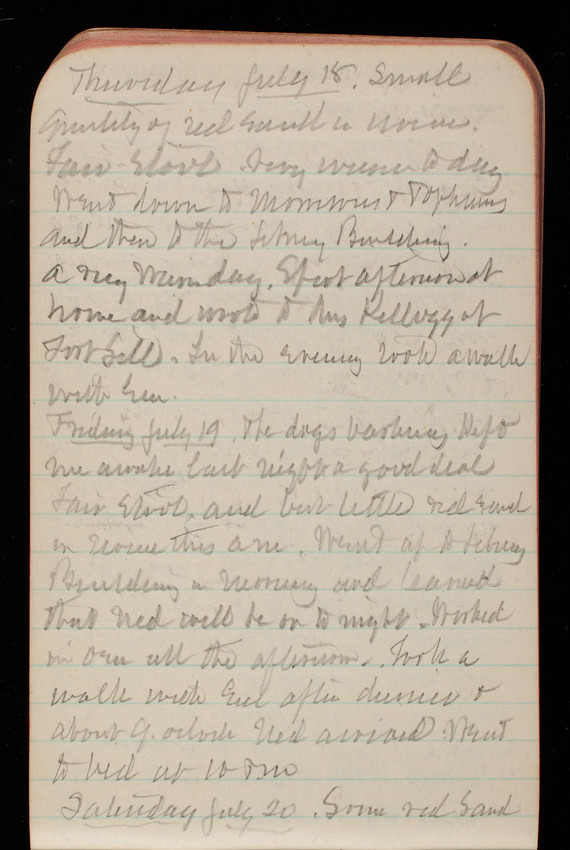 Thursday July 18. Small
quantity of red sand in urine.
Fair Stool. Very warm to day
Went down to &
and then to the Library Building.
a very warm day. Spent afternoon at
home and wrote to Mrs Kellogg at
Fort Sill. In the evening took a walk
with Em.
Friday July 19. The dogs barking kept
me awake last night a good deal
Fair Stool. and but little red sand
in urine this a m. Went up to Library
Building in morning and learned
that Ned will be on to night. Worked
in all the afternoon. Took a
walk with Em after dinner &
about 9. oclock Ned arrived. Went
to bed at 10 P M
Saturday July 20. Some red sand